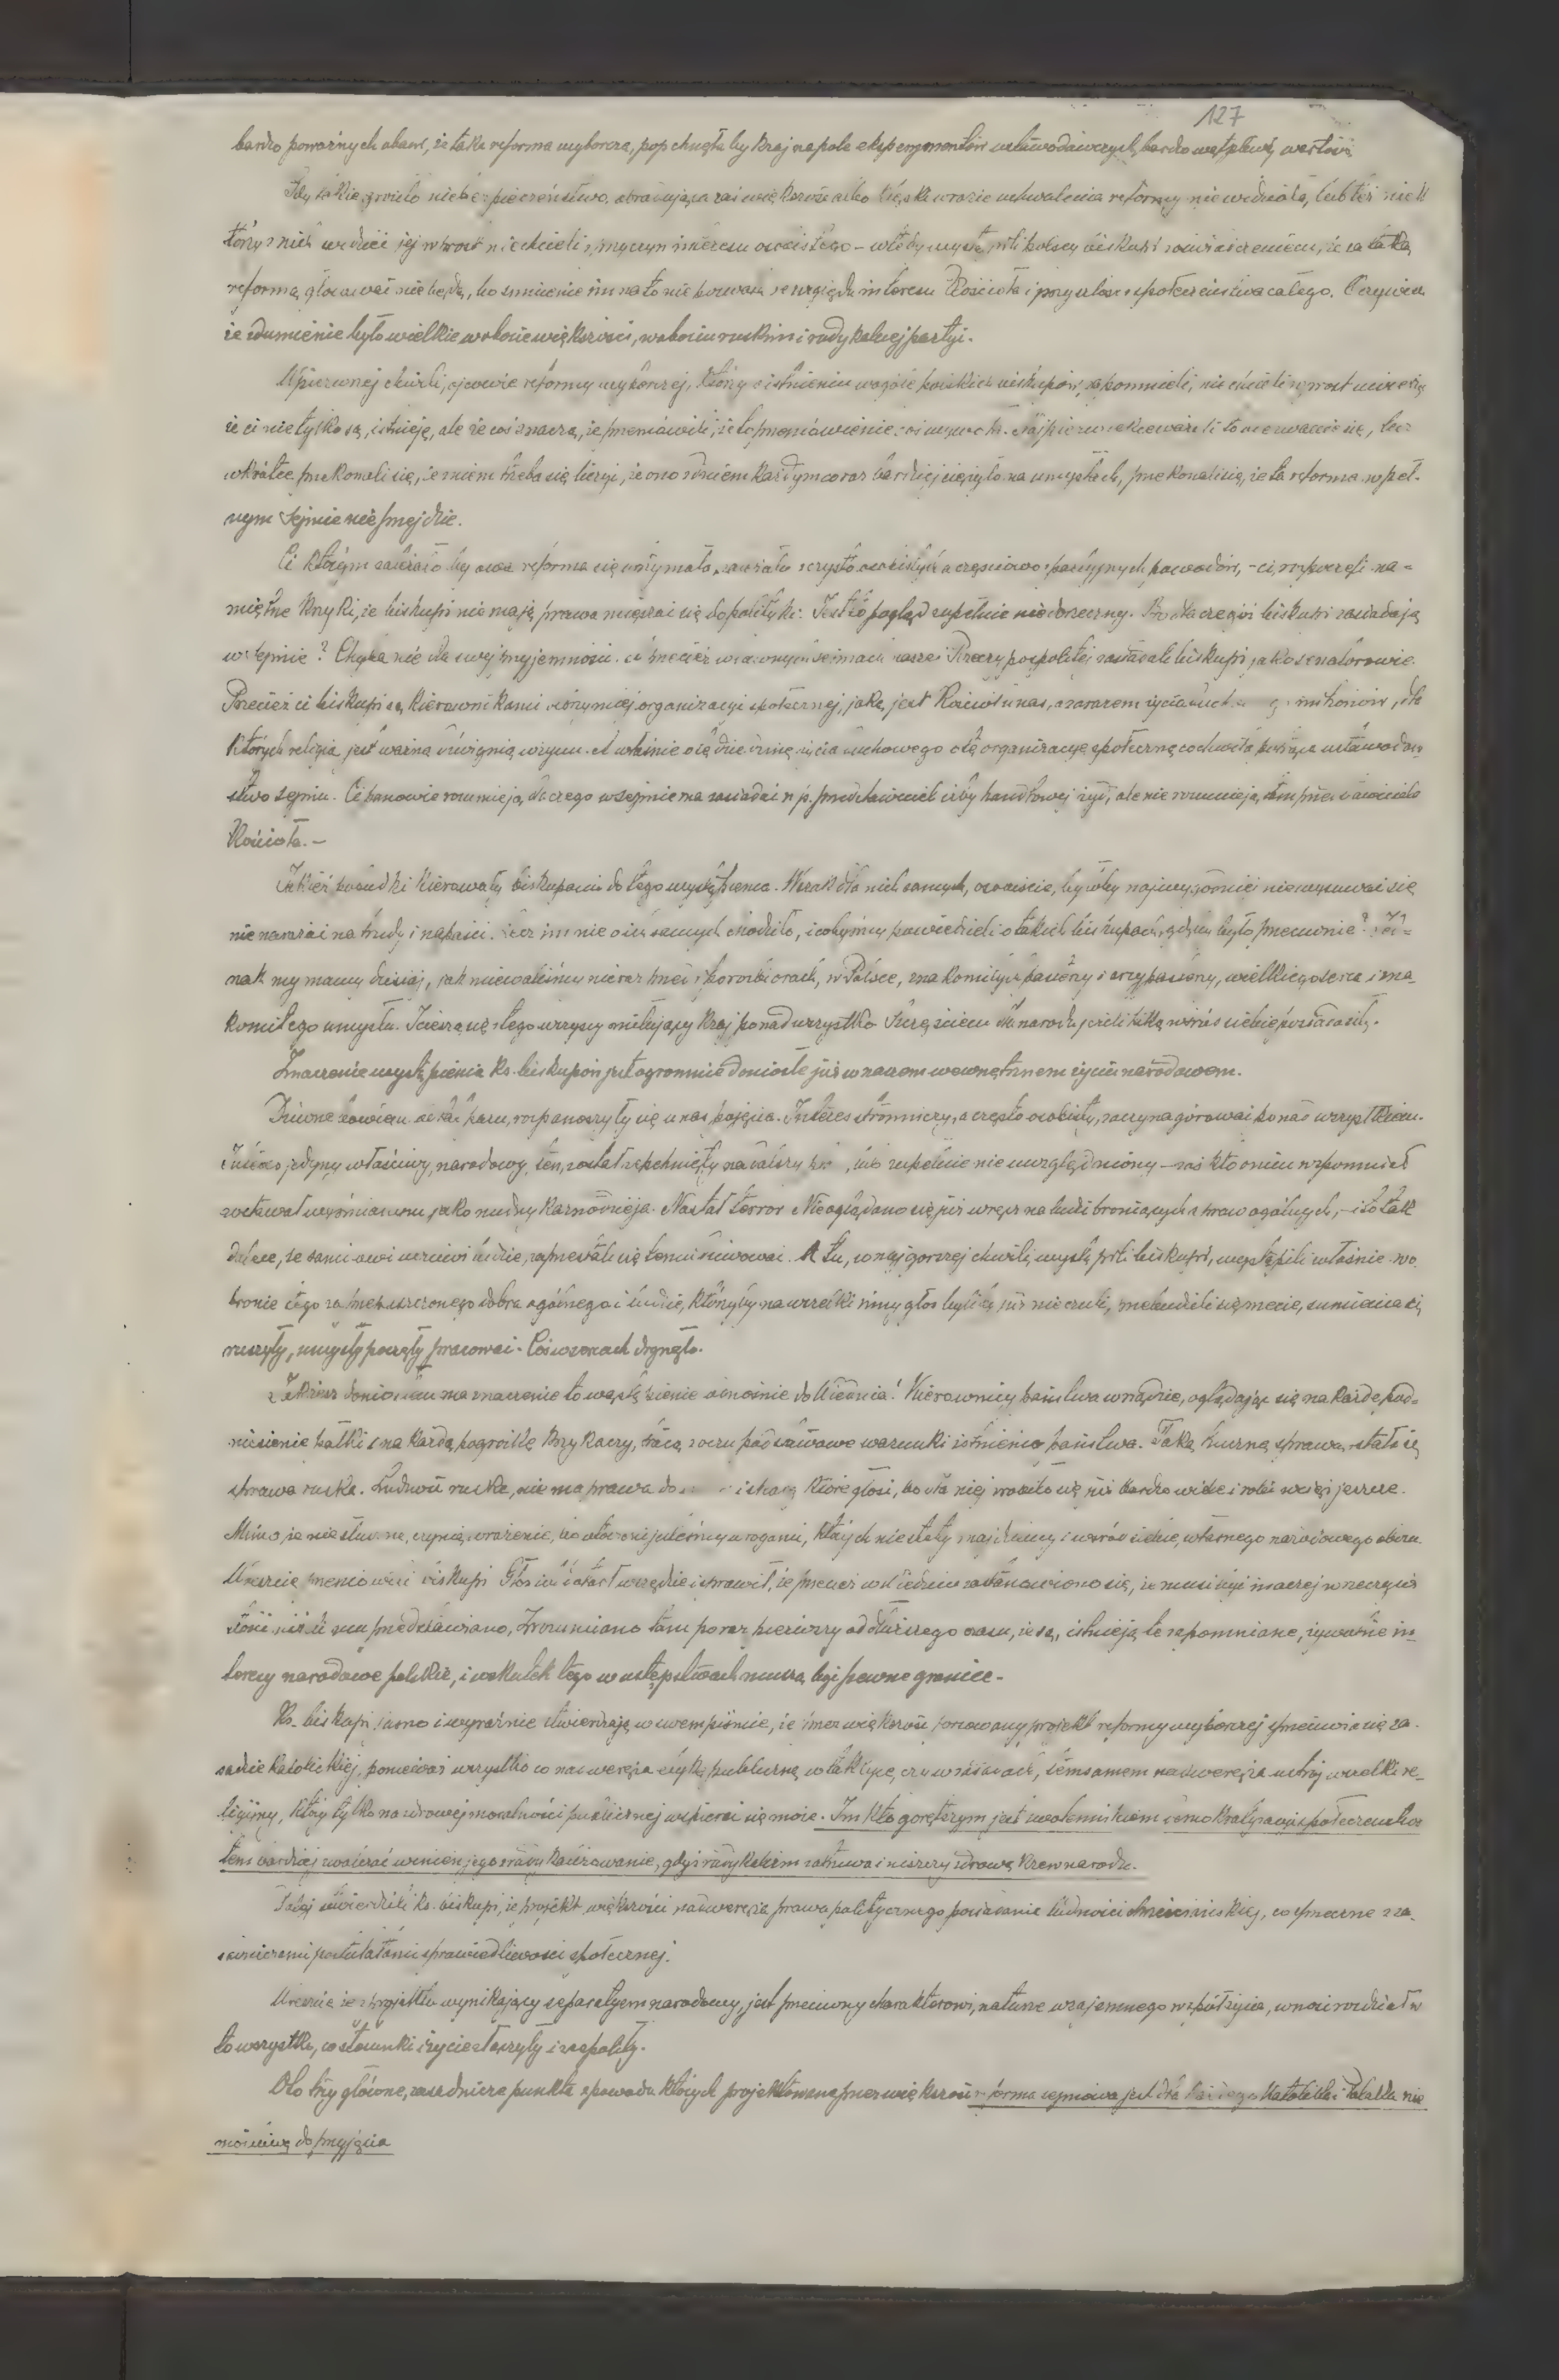 127
bardzo poważnych obaw, że taka reforma wyborcza, popchnęłaby kraj na pole eksperymentów ustawodawczych, bardzo wątpliwej wartości
Gdy takie groziło niebezpieczeństwo, a w razie uchwalenia reformy nie widziała, lub też niek
tórzy z nich widzieć jej wprost nie chcieli, interesu osobistego – wtedy wystąpili polscy biskupi z oświadczeniem, że za taką
reformą głosować nie będą, bo sumienie im na to nie pozwala ze względu interesu Kościoła i przyszłości społeczeństwa całego. Oczywiście
że zdumienie było wielkie w obozie większości, w obozie ruskim i radykalnej partyi.
W pierwszej chwili, ojcowie reformy wyborczej, którzy o istnieniu wogóle polskich biskupów zapomnieli, nie chcieli wprost uwierzyć
że ci nie tylko są, istnieją, ale że coś znaczą, że przemówili, że to przemówienie coś Najpierw to odezwanie się, lecz
wkrótce przekonali się, że z niem trzeba się liczyć, że ono z dniem każdym coraz bardziej ciężyło na umysłach, przekonali się, że ta reforma w peł-
nym Sejmie nie przejdzie.
Ci którym zależało by owa reforma się utrzymała, z czysto osobistych a częściowo partyjnych powodów, – ci rozpoczęli na-
miętne krzyki, że biskupi nie mają prawa mięszać się do polityki. Jest to pogląd zupełnie niedorzeczny. Bo dlaczegoż biskupi zasiadają
w Sejmie? Chyba nie dla swej przyjemności. A przecież w dawnych sejmach naszej Rzeczypospolitej zasiadali biskupi jako senatorowie.
Przecież ci biskupi są kierownikami olbrzymiej organizacyi społecznej, jaką jest Kościół u nas, a zarazem życia milionów, dla
których religia jest ważną dźwignią w życiu. A właśnie o tę dziedzinę życia duchowego o tę organizacyę społeczną ustawodaw-
stwo sejmu. Ci panowie rozumieją, dlaczego w sejmie ma zasiadać n.p. przedstawiciel izby handlowej żyd, ale nie rozumieją, tam przedstawiciela
Kościoła. –
Jakież pobudki kierowały biskupami do tego wystąpienia. Wszak dla nich samych, osobiście, byłoby najwygodniej nie wysuwać się
nie narażać na trudy i napaści. Lecz im nie o ich samych chodziło, i cobyśmy powiedzieli o takich biskupach, gdyby było przeciwnie? Jed-
nak my mamy dzisiaj, jak miewaliśmy nieraz przed i po rozbiorach, w Polsce, znakomitych pasterzy i arcypasterzy, wielkiego serca i zna-
komitego umysłu. Cieszą się z tego wszyscy miłujący kraj ponad wszystko. Szczęściem dla narodu jeżeli taką wśród siebie posiada siłę.
Znaczenie wystąpienia ks. biskupów jest ogromnie doniosłe już w naszem wewnętrznem życiu narodowem.
Dziwne bowiem od lat paru, rozpanoszyły się u nas pojęcia. Interes stronniczy, a często osobisty, zaczyna górować ponad wszystkiem.
Interes jedyny właściwy, narodowy, ten, został zepchnięty na dalszy lub zupełnie nie uwzględniony – zaś kto o nim wspomniał
zostawał wyśmianym jako nudny kaznodzieja. Nastał terror. Nie oglądano się już wręcz na ludzi broniących spraw ogólnych, – i to tak
dalece, że sami owi uczciwi ludzie, zaprzestali się temu dziwować. A tu, w najgorszej chwili, wystąpili biskupi, wystąpili właśnie w o
bronie tego zaprzepaszczonego dobra ogólnego i ludzie, którzyby na wszelki inny głos byliby już nie czuli, przebudzili się przecie, sumienia się
ruszyły, umysły poczęły pracować. Coś w sercach drgnęło.
Jakież doniosłe ma znaczenie to wystąpienie odnośnie do Wiednia! Kierownicy państwa w rządzie, oglądając się na każde pod-
niesienie pałki i na każdą pogróżkę krzykaczy, tracą z oczu podstawowe warunki istnienia państwa. Taką burzną sprawą stała się
sprawa ruska. Ludność ruska, nie ma prawa do które głosi, bo dla niej zrobiło się już bardzo wiele i robi wciąż jeszcze.
Mimo, że niesłuszne, czynią wrażenie, bo otoczeni jesteśmy wrogami, których niestety znajdziemy i wśród siebie, własnego narodowego obozu.
Wreszcie przemówili biskupi. Głos ich dotarł wszędzie i sprawił, że przecież w Wiedniu zastanowiono się, że musi być inaczej w rzeczywis
tości niż to im przedstawiano, Zrozumiano tam po raz pierwszy od dłuższego czasu, że są, istnieją te zapomniane, żywotne in-
teresy narodowe polskie, i wskutek tego w ustępstwach muszą być pewne granice.
Ks. biskupi jasno i wyraźnie stwierdzają w swem piśmie, że przez większość forsowany projekt reformy wyborczej sprzeciwia się za-
sadzie katolickiej, ponieważ wszystko co nadweręża etykę publiczną w taktyce, czy w zasadach, tem samem nadweręża ustrój wszelki re-
ligijny, który tylko na zdrowej moralności publicznej wspierać się może. Im kto gorętszym jest zwolennikiem demokratyzacyi społeczeństwa
tem bardziej zwalczać winien jego zradykalizowanie, gdyż radykalizm zatruwa i niszczy zdrową krew narodu.
Dalej stwierdzili ks. biskupi, że projekt większości nadweręża prawa politycznego posiadania ludności chrześcijańskiej, co sprzeczne z za-
sadniczemi postulatami sprawiedliwości społecznej.
Wreszcie że z projektu wynikający separatyzm narodowy, jest przeciwny charakterowi, naturze wzajemnego współżycia, wnosi rozdział w
to wszystko, co stosunki i życie złączyły i zespoliły.
Oto trzy główne, zasadnicze punkta z powodu których projektowana przez większość reforma sejmowa jest dla każdego katolika i Polaka nie
możliwą do przyjęcia